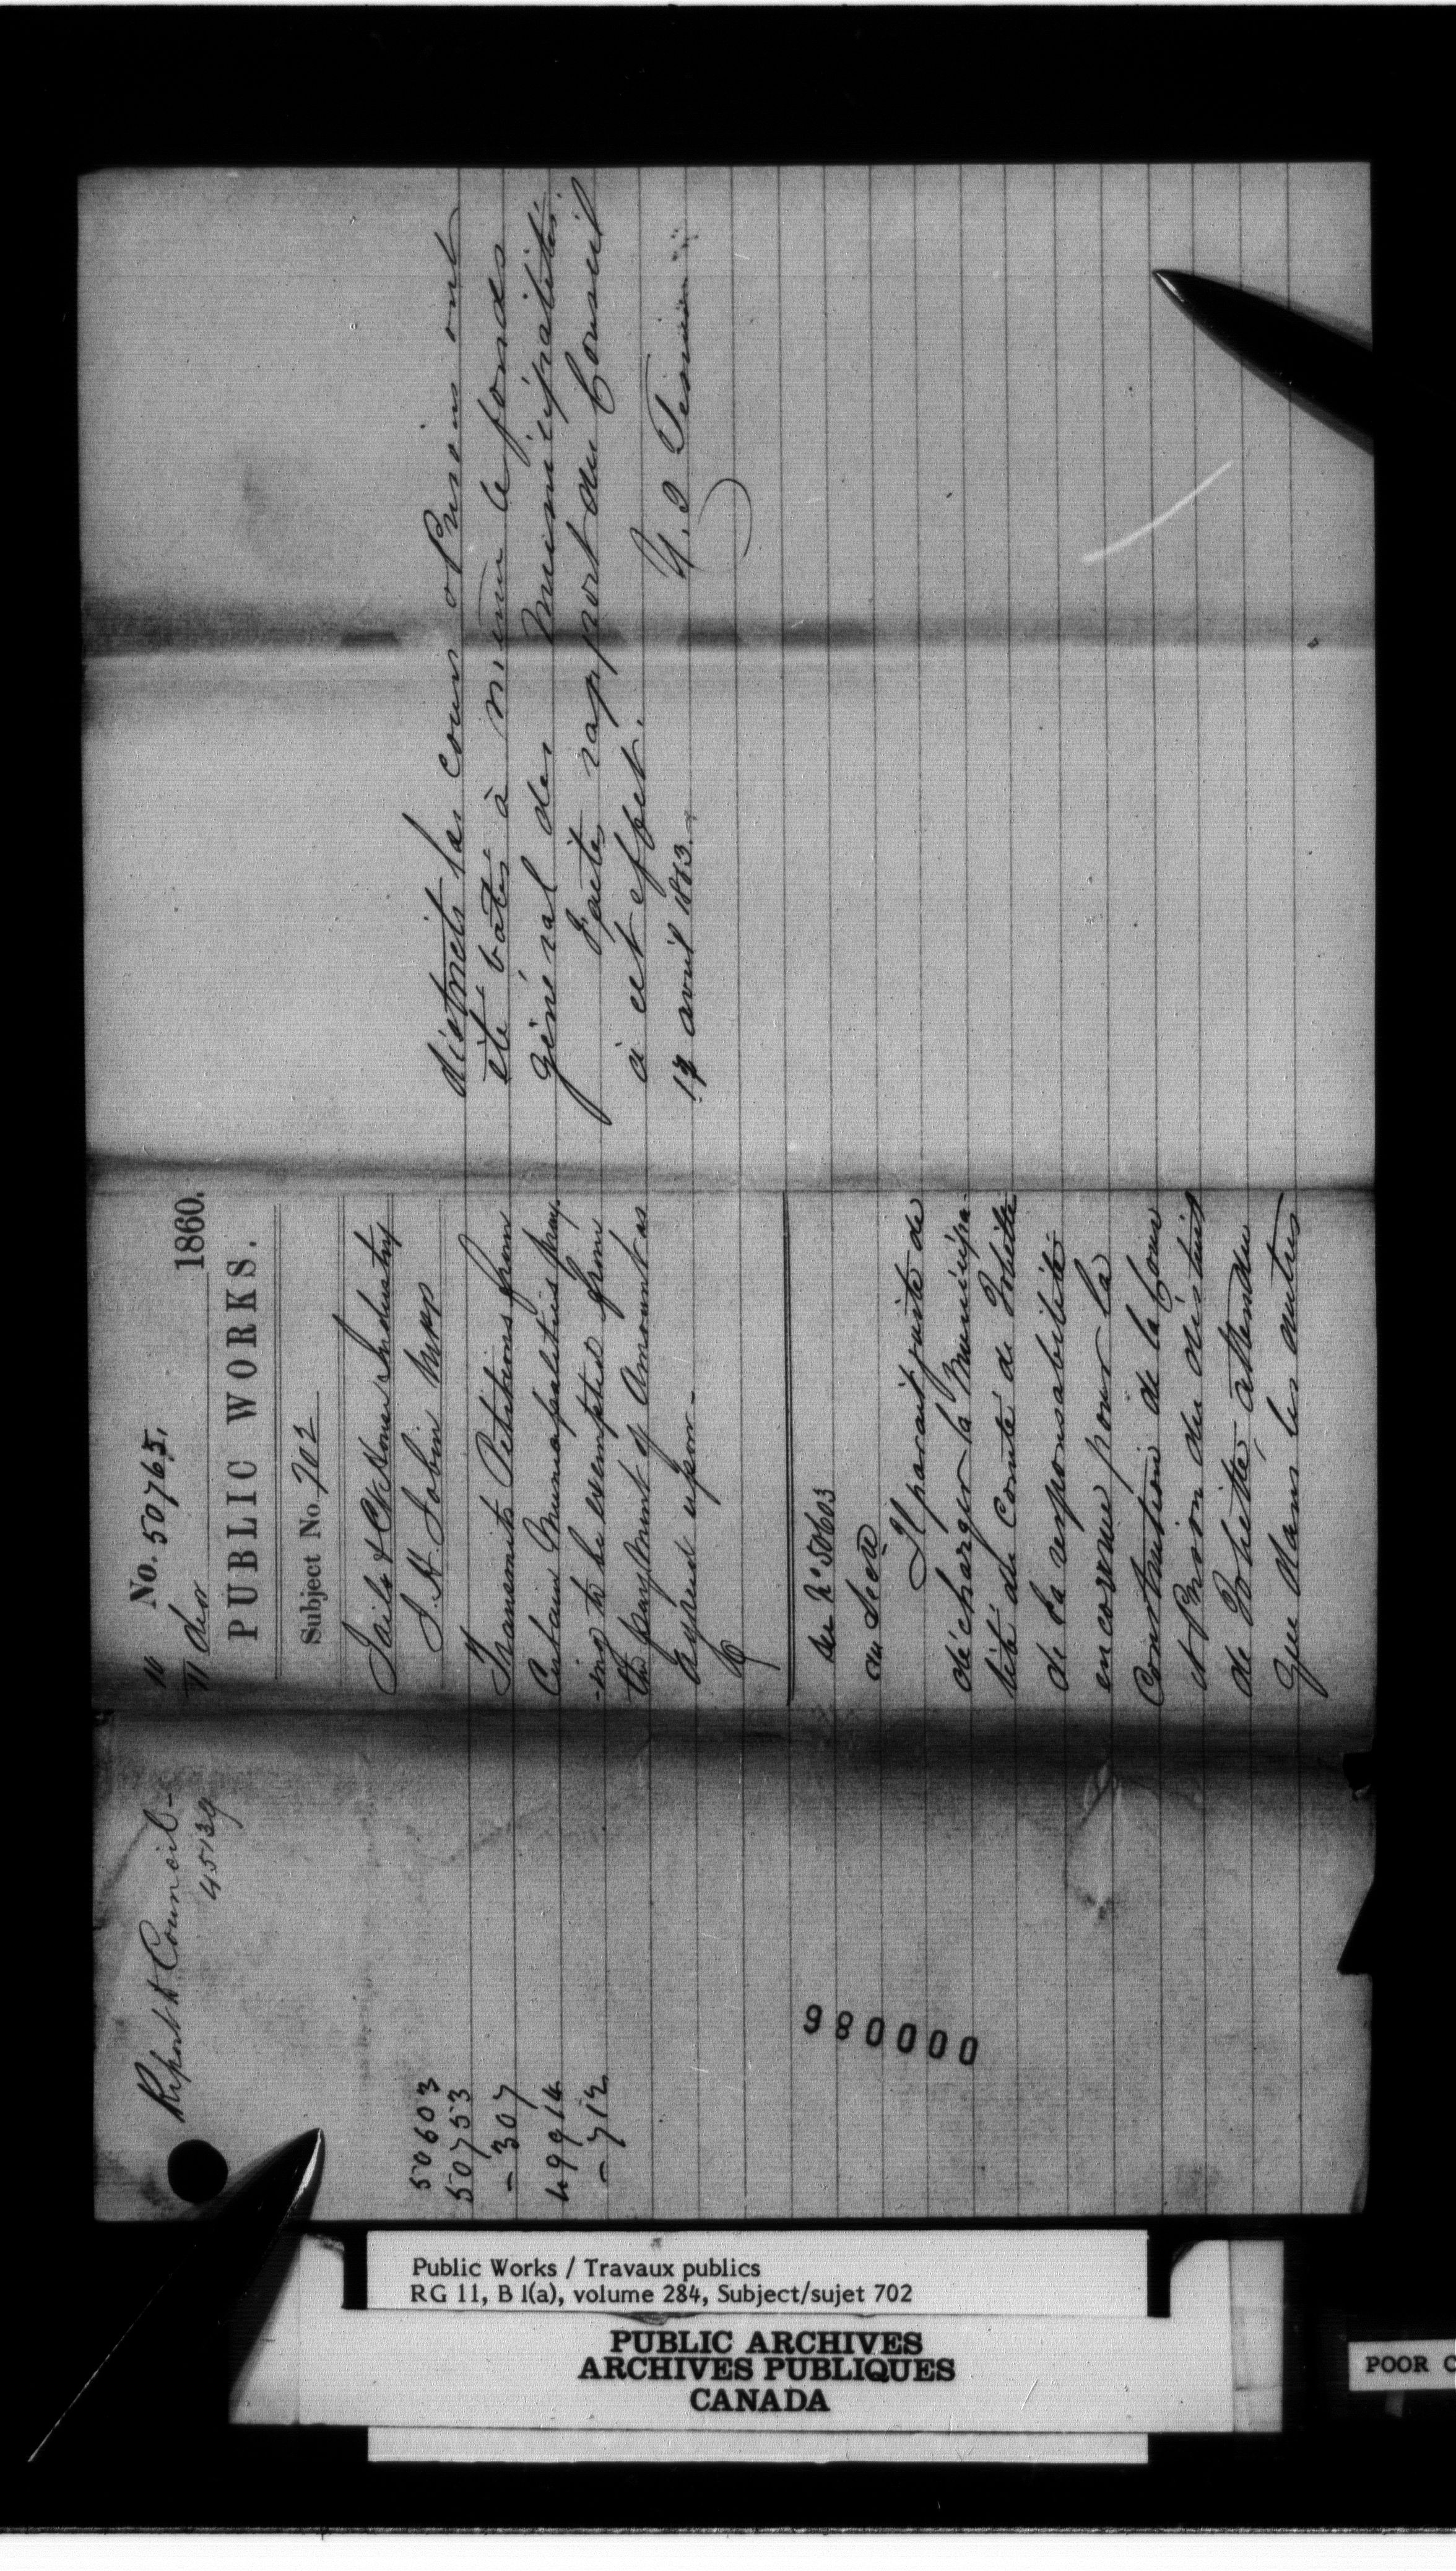 Report to Council -
45139
50603
50753
- 307
49914
- 712
000086
10 No. 50765.
11 Decr 1860.
PUBLIC WORKS.
Subject No. 702
Jails & Ct Houses Industry
J. H. Jobin MPP
Transmits Petitions from
Certain Municipalities pray
-ing to be exempted from
the payment of Amount as
agreed upon -
See No 50603
au Secre
Il parait juste de
décharger la Municipa-
lité du Comté de Joliette
de la responsabilité
encourue pour la
Construction de la Cour
et Prison du district
de Joliette attendu
que dans les autres
districts les cours & Prisons ont
été bâtis à même le fonds
général des Municipalités
faites rapport au Conseil
à cet effet.
17 avril 1863.
U. J. Tessier
Public Works / Travaux publics
RG 11, B 1(a), volume 284, Subject/sujet 702
PUBLIC ARCHIVES
ARCHIVES PUBLIQUES
CANADA
POOR C